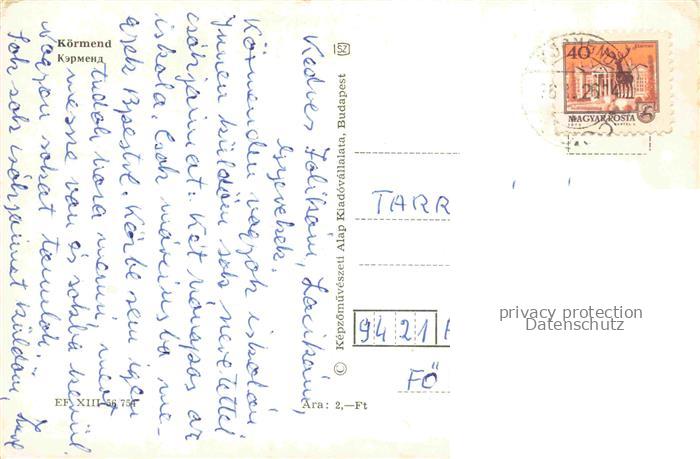 Körmend
Кэрменд
Kedves Zolikám, Lacikám,
Gyerekek.
Körmenden vagyok iskolán
Innen küldöm sok szeretettel
csókjaimat. Két hónapos az
iskola. Csak márciusba me-
gyek Bpestre. Körbe sem igen
tudok haza menni mert
messze van és sokba kerül.
Nagyon sokat tanulok.
Sok sok csókjaimat küldöm,
EF. XIII-56 754
Ára: 2,—Ft
© Képzőművészeti Alap Kiadóvállalata, Budapest
SZ
40
MAGYAR POSTA
TARR
9421
FŐ
privacy protection
Datenschutz